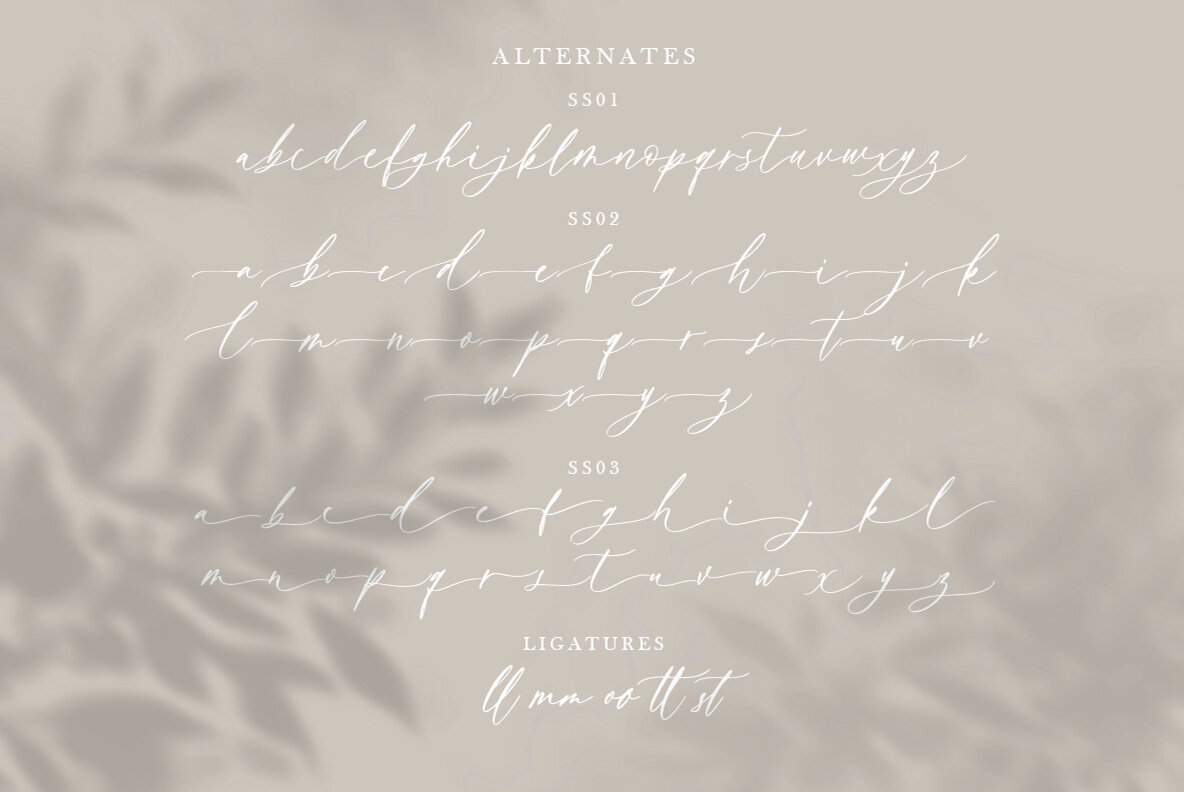 ALTERNATES
SS01
abcdefghijklmnopqrstuvwxyz
SS02
a b c d e f g h i j k
l m n o p q r s t u v
w x y z
SS03
a b c d e f g h i j k l
m n o p q r s t u v w x y z
LIGATURES
ll mm oo tt st